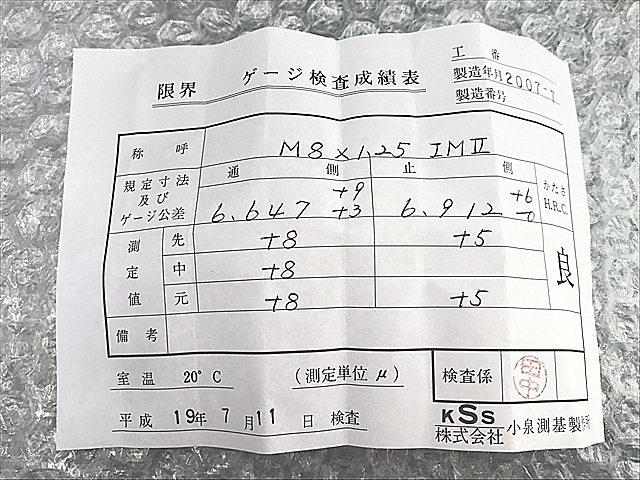 工番
限界 ゲージ検査成績表
製造年月 2007-7
製造番号
称呼 M8×1.25 IMⅡ
規定寸法及びゲージ公差
通側 止側
6.647 +9 +3
6.912 +6 -0
かたさ H.R.C.
測定値
先 +8 +5
中 +8
元 +8 +5
良
備考
室温 20°C (測定単位μ)
検査係
平成 19年 7月 11日 検査
KSS
株式会社 小泉測基製作所